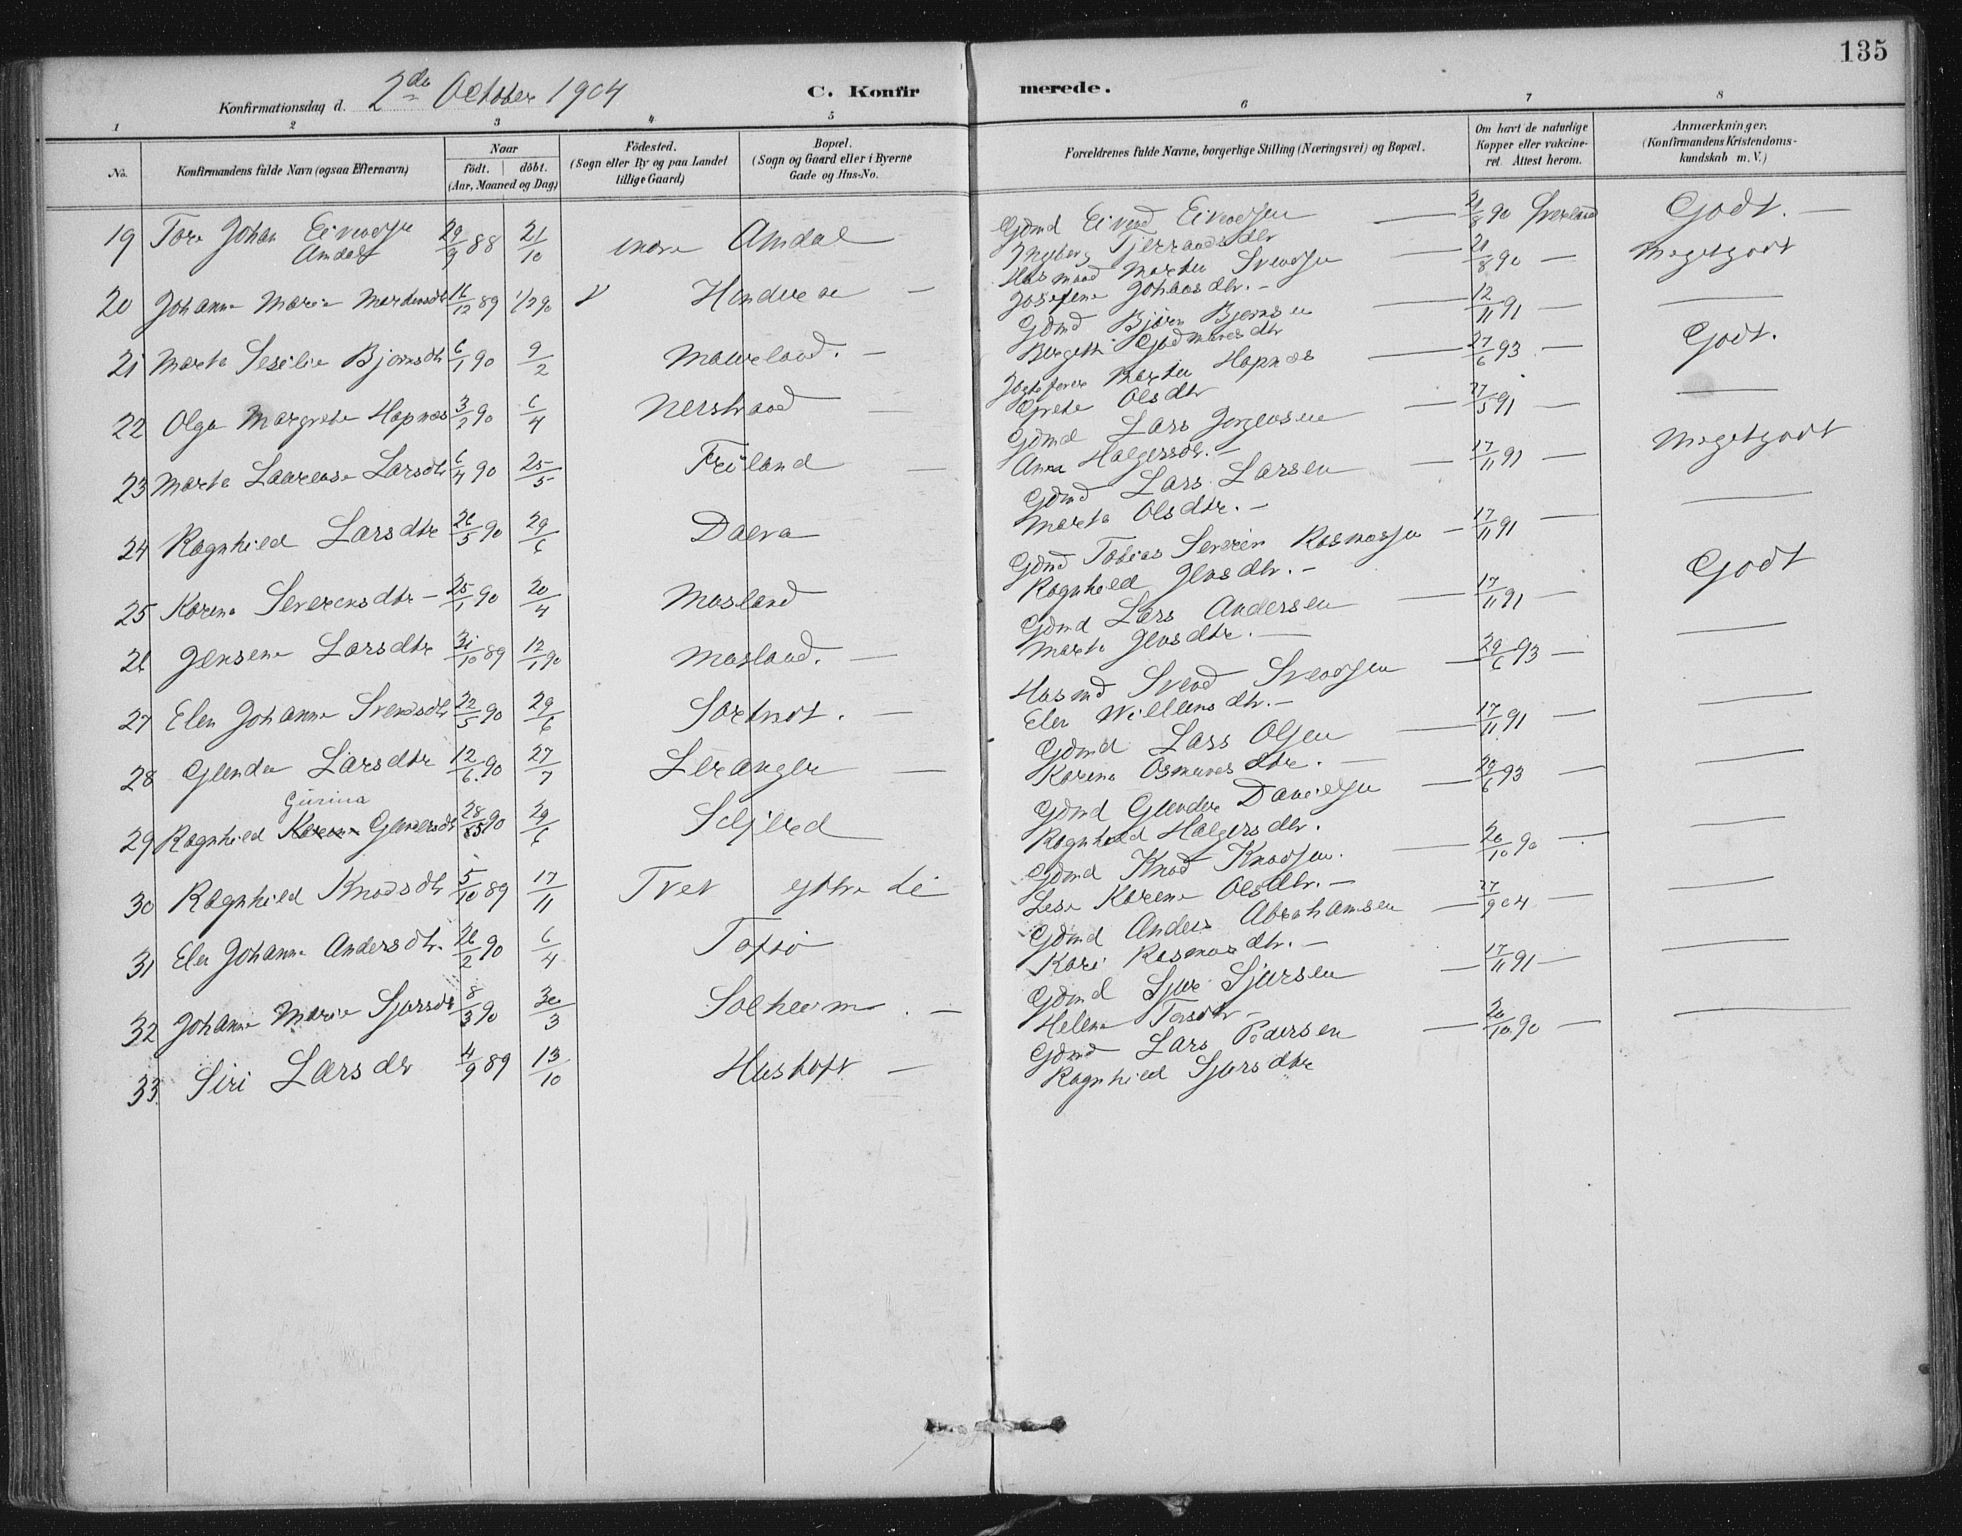 135
Konfirmationsdag d. 2de October 1904
C. Konfirmerede.
1 2 3 4 5 6 7 8
No.
Konfirmandens fulde Navn (ogsaa Efternavn)
Naar
födt. döbt.
(Aar, Maaned og Dag)
Födested.
(Sogn eller By og paa Landet tillige Gaard)
Bopæl.
(Sogn og Gaard eller i Byerne Gade og Hus-No.
Forældrenes fulde Navne, borgerlige Stilling (Næringsvei) og Bopæl.
Om havt de naturlige Kopper eller vakcineret. Attest herom.
Anmærkninger.
(Konfirmandens Kristendomskundskab m. V.)
19 Tore Johan Eivendsen Amdal 29/9 88 21/10 indre Amdal Gdmd Eivend Eivendsen — 21/8 90 Godt. —
Ingeborg Tjerrandsdtr
20 Johanne Marie Mortensdtr 16/12 89 1/2 90 Hinderaa — Husmand Morten Svendsen — 21/8 90 — Megetgodt
Josefine Johansdtr. —
21 Marta Sesilie Bjornsdtr 6/1 90 9/2 Maureland. — Gdmd Bjørn Bjørnsen — 12/11 91 —
Bergette Gudmundsdtr
22 Olga Margrete Hapnes 3/2 90 6/4 Nerstrand — Morten Hapnes — 27/6 93 — Godt.
Grete Olsdtr
23 Marta Laurense Larsdtr 6/4 90 25/5 Friland — Gdmd Lars Jorgensen — 27/5 91 —
Anna Halgersdtr. —
24 Ragnhild Larsdtr 26/5 90 29/6 Dueva Gdmd Lars Larsen — 17/11 91 — Megetgodt
Marta Olsdtr. —
25 Karina Severensdtr — 25/1 90 20/4 Mosland Gdmd Tobias Severin Rasmussen — 17/11 91 —
Ragnhild Jensdtr. —
26 Jensene Larsdtr 31/10 89 12/1 90 Mosland. — Gdmd Lars Andersen — 17/11 91 — Godt
Marta Jensdtr. —
27 Elen Johanne Svendsdtr 22/5 90 29/6 — Husmd Svend Svendsen — 29/6 93 —
Elen Willemsdtr. —
28 Glendin Larsdtr 12/6 90 27/7 Leranger — Gdmd Lars Olsen — 17/11 91 —
Karina Osmundsdtr. —
29 Ragnhild Gurina 28/5 90 29/6 Gdmd Danielsen — 29/6 93 —
Ragnhild Halgersdtr.
30 Ragnhild Knudsdtr 5/10 89 17/11 Tvet ytre Li Gdmd Knud Knudsen. — 20/10 90 —
Karine Olsdtr. —
31 Elen Johanne Andersdtr. 26/2 90 6/4 Toftø Gdmd Anders Abrahamsen — 27/9 04 —
Kari Rasmusdtr. —
32 Johanne Marie Sjursdtr 8/3 90 30/3 Solheim. — Gdmd Sjur Sjursen — 17/11 91 —
Helene Torsdtr —
33 Siri Larsdtr 4/9 89 13/10 Hustoft — Gdmd Lars Pedersen — 20/10 90 —
Ragnhild Sjursdtr